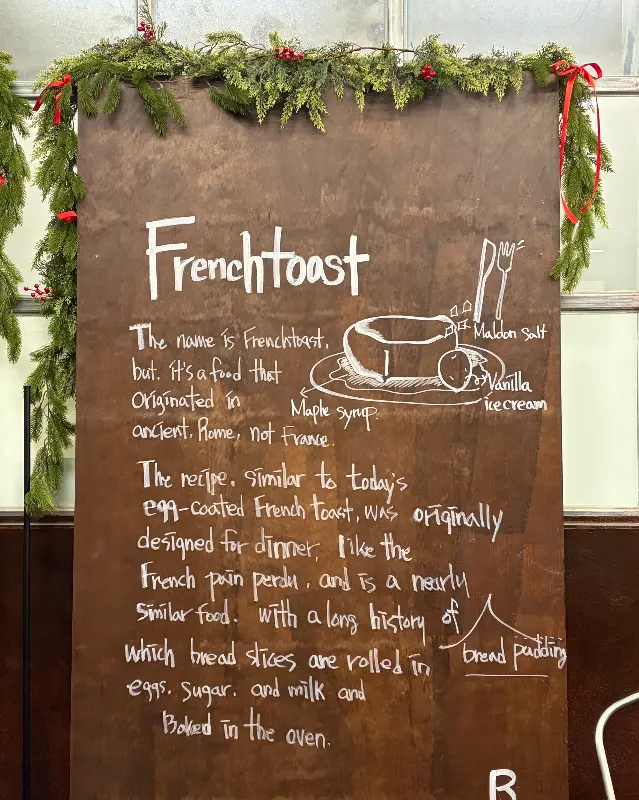 Frenchtoast
The name is Frenchtoast,
but. it's a food that
originated in
ancient, Rome, not France.
Maldon Salt
Vanilla
ice cream
Maple syrup.
The recipe, similar to today's
egg-coated French toast, was originally
designed for dinner, like the
French pain perdu, and is a nearly
similar food. with a long history of
bread pudding
which bread slices are rolled in
eggs. sugar. and milk and
Baked in the oven.
R